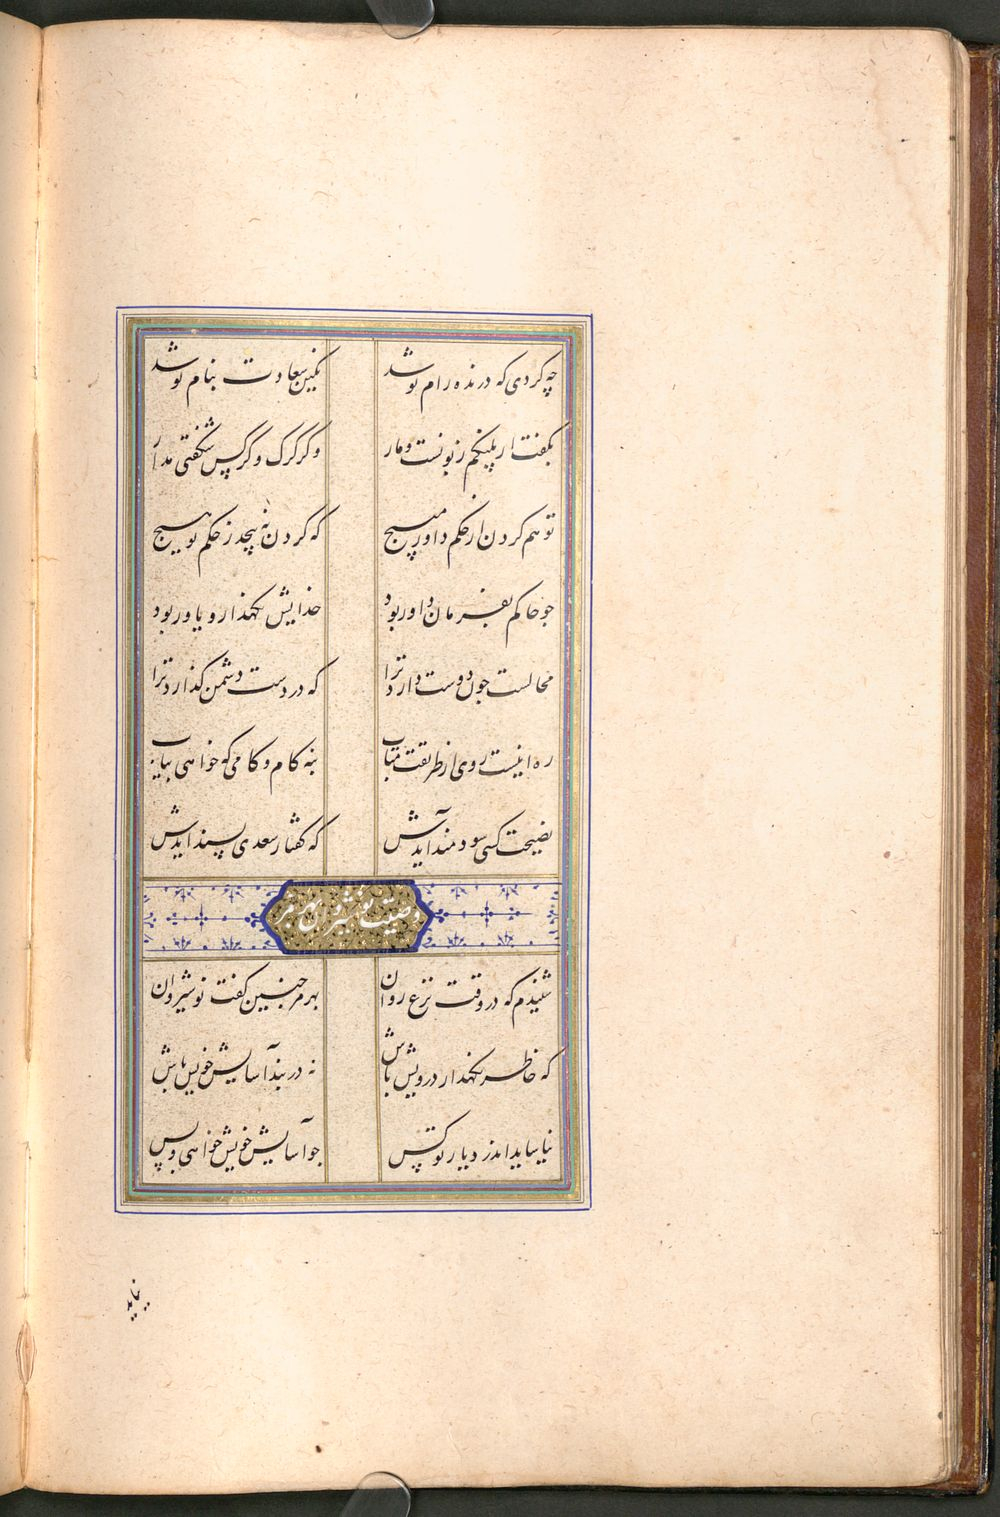 چه کردی که درنده رام تو شد نکین سعادت بنام تو شد
بکفت ار پلنکم زبونست و مار وکر کرک و کرکس شکفتی مدار
تو هم کردن از حکم داور مپیچ که کردن نه پیچد ز حکم تو هیچ
جو حاکم بفرمان داور بود خدایش نکهدار و یاور بود
محالست جون دوست دارد ترا که در دست دشمن کذارد ترا
ره اینست روی از طریقت متاب بنه کام و کامی که خواهی بیاب
نصیحت کسی سودمند آیدش که کفتار سعدی پسند آیدش
وصیت نوشیروان بهرمز
شنیدم که در وقت نزع روان بهرمز جنین کفت نوشیروان
که خاطر نکهدار درویش باش نه در بند آسایش خویش باش
نیاساید اندر دیار تو کس جو آسایش خویش خواهی و بس
نیاید